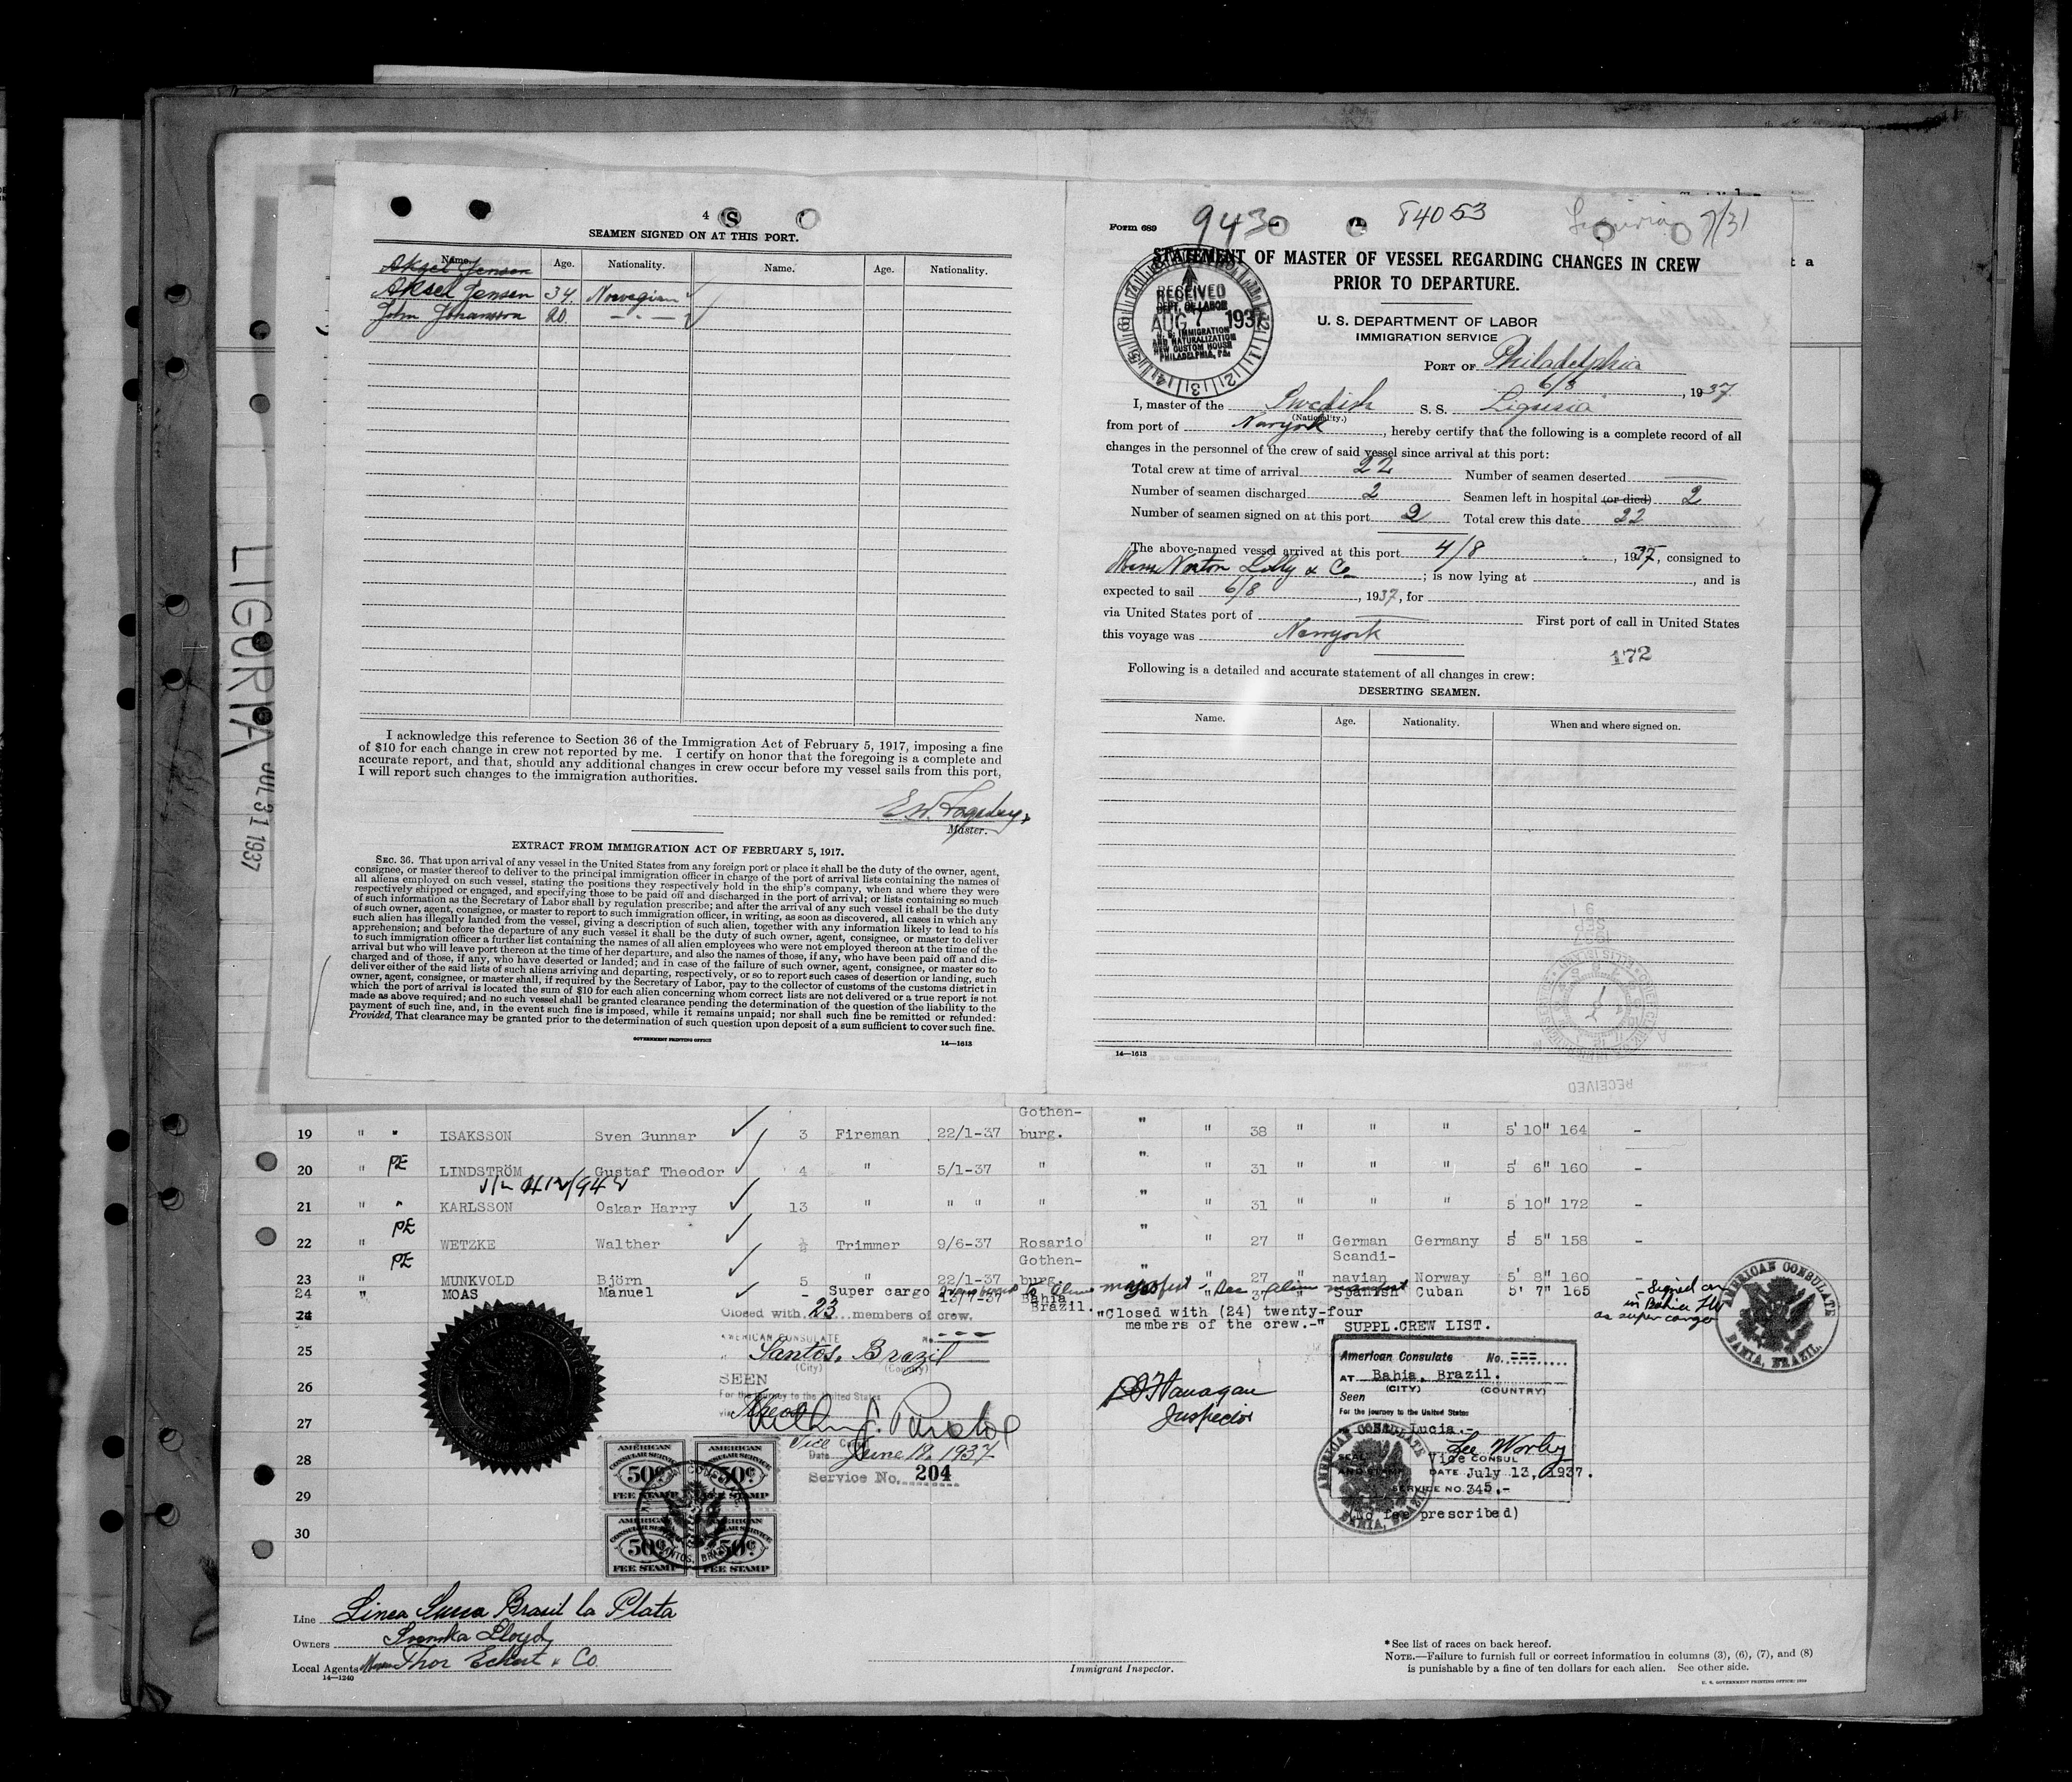 4 S
SEAMEN SIGNED ON AT THIS PORT.
Name. Age. Nationality. Name. Age. Nationality.
Aksel Jensen
Aksel Jensen 34. Norwegian
John Johansson 20. — " —
I acknowledge this reference to Section 36 of the Immigration Act of February 5, 1917, imposing a fine
of $10 for each change in crew not reported by me. I certify on honor that the foregoing is a complete and
accurate report, and that, should any additional changes in crew occur before my vessel sails from this port,
I will report such changes to the immigration authorities.
Master.
EXTRACT FROM IMMIGRATION ACT OF FEBRUARY 5, 1917.
SEC. 36. That upon arrival of any vessel in the United States from any foreign port or place it shall be the duty of the owner, agent,
consignee, or master thereof to deliver to the principal immigration officer in charge of the port of arrival lists containing the names of
all aliens employed on such vessel, stating the positions they respectively hold in the ship's company, when and where they were
respectively shipped or engaged, and specifying those to be paid off and discharged in the port of arrival; or lists containing so much
of such information as the Secretary of Labor shall by regulation prescribe; and after the arrival of any such vessel it shall be the duty
of such owner, agent, consignee, or master to report to such immigration officer, in writing, as soon as discovered, all cases in which any
such alien has illegally landed from the vessel, giving a description of such alien, together with any information likely to lead to his
apprehension; and before the departure of any such vessel it shall be the duty of such owner, agent, consignee, or master to deliver
to such immigration officer a further list containing the names of all alien employees who were not employed thereon at the time of the
arrival but who will leave port thereon at the time of her departure, and also the names of those, if any, who have been paid off and dis-
charged and of those, if any, who have deserted or landed; and in case of the failure of such owner, agent, consignee, or master so to
deliver either of the said lists of such aliens arriving and departing, respectively, or so to report such cases of desertion or landing, such
owner, agent, consignee, or master shall, if required by the Secretary of Labor, pay to the collector of customs of the customs district in
which the port of arrival is located the sum of $10 for each alien concerning whom correct lists are not delivered or a true report is not
made as above required; and no such vessel shall be granted clearance pending the determination of the question of the liability to the
payment of such fine, and, in the event such fine is imposed, while it remains unpaid; nor shall such fine be remitted or refunded:
Provided, That clearance may be granted prior to the determination of such question upon deposit of a sum sufficient to cover such fine.
GOVERNMENT PRINTING OFFICE 14—1613
Form 689 943 84053 Liguria 7/31
STATEMENT OF MASTER OF VESSEL REGARDING CHANGES IN CREW
PRIOR TO DEPARTURE.
U. S. DEPARTMENT OF LABOR
IMMIGRATION SERVICE
RECEIVED
DEPT. OF LABOR
AUG 7 1937
U. S. IMMIGRATION
AND NATURALIZATION
NEW CUSTOM HOUSE
PHILADELPHIA, PA.
PORT OF Philadelphia
6/8, 1937.
I, master of the Swedish S. S. Liguria
(Nationality.)
from port of Newyork, hereby certify that the following is a complete record of all
changes in the personnel of the crew of said vessel since arrival at this port:
Total crew at time of arrival 22 Number of seamen deserted
Number of seamen discharged 2 Seamen left in hospital (or died) 2
Number of seamen signed on at this port 2 Total crew this date 22
The above-named vessel arrived at this port 4/8, 1937, consigned to
Messrs Norton Lilly & Co; is now lying at , and is
expected to sail 6/8, 1937, for
via United States port of First port of call in United States
this voyage was Newyork
172
Following is a detailed and accurate statement of all changes in crew:
DESERTING SEAMEN.
Name. Age. Nationality. When and where signed on.
14—1613
RECEIVED
LIGURIA JUL 31 1937
19 " " ISAKSSON Sven Gunnar 3 Fireman 22/1-37 Gothen-burg. " " 38 " " " 5' 10" 164 -
20 " PE LINDSTRÖM Gustaf Theodor 4 " 5/1-37 " " " 31 " " " 5' 6" 160 -
21 " " KARLSSON Oskar Harry 13 " " " " " " 31 " " " 5 10" 172 -
22 " PE WETZKE Walther ½ Trimmer 9/6-37 Rosario " " 27 " German Germany 5' 5" 158 -
23 " PE MUNKVOLD Björn 5 " 22/1-37 Gothen-burg. " " 27 " Scandi-navian Norway 5' 8" 160 -
24 " MOAS Manuel - Super cargo 13/7-37 Bahia Brazil. " 37 " Spanish Cuban 5' 7" 165 -
Signed on
in Bahia
as super cargo
24 Closed with 23 members of crew. "Closed with (24) twenty-four
members of the crew.-"
SUPPL.CREW LIST.
AMERICAN CONSULATE No. ---
25 Santos, Brazil
(City) (Country)
26 SEEN
For the journey to the United States
27
Vice Consul
28 Date June 18, 1937
Service No. 204
29
30
Flanagan
Inspector
American Consulate No. ===
AT Bahia, Brazil.
(CITY) (COUNTRY)
Seen
For the journey to the United States
Lucia.-
Lee Worley
SEAL VICE CONSUL
AND STAMP DATE July 13, 1937.
SERVICE NO. 345.-
(No fee prescribed)
AMERICAN CONSULATE
BAHIA, BRAZIL
AMERICAN CONSULATE
BAHIA, BRAZIL.
AMERICAN CONSULAR SERVICE 50¢ FEE STAMP
AMERICAN CONSULAR SERVICE 50¢ FEE STAMP
AMERICAN CONSULAR SERVICE 50¢ FEE STAMP
AMERICAN CONSULAR SERVICE 50¢ FEE STAMP
Line Linea Sueca Brasil la Plata
Owners Svenska Lloyd,
Local Agents Messrs Thor Eckert & Co.
14—1240
Immigrant Inspector.
* See list of races on back hereof.
NOTE.—Failure to furnish full or correct information in columns (3), (6), (7), and (8)
is punishable by a fine of ten dollars for each alien. See other side.
U. S. GOVERNMENT PRINTING OFFICE